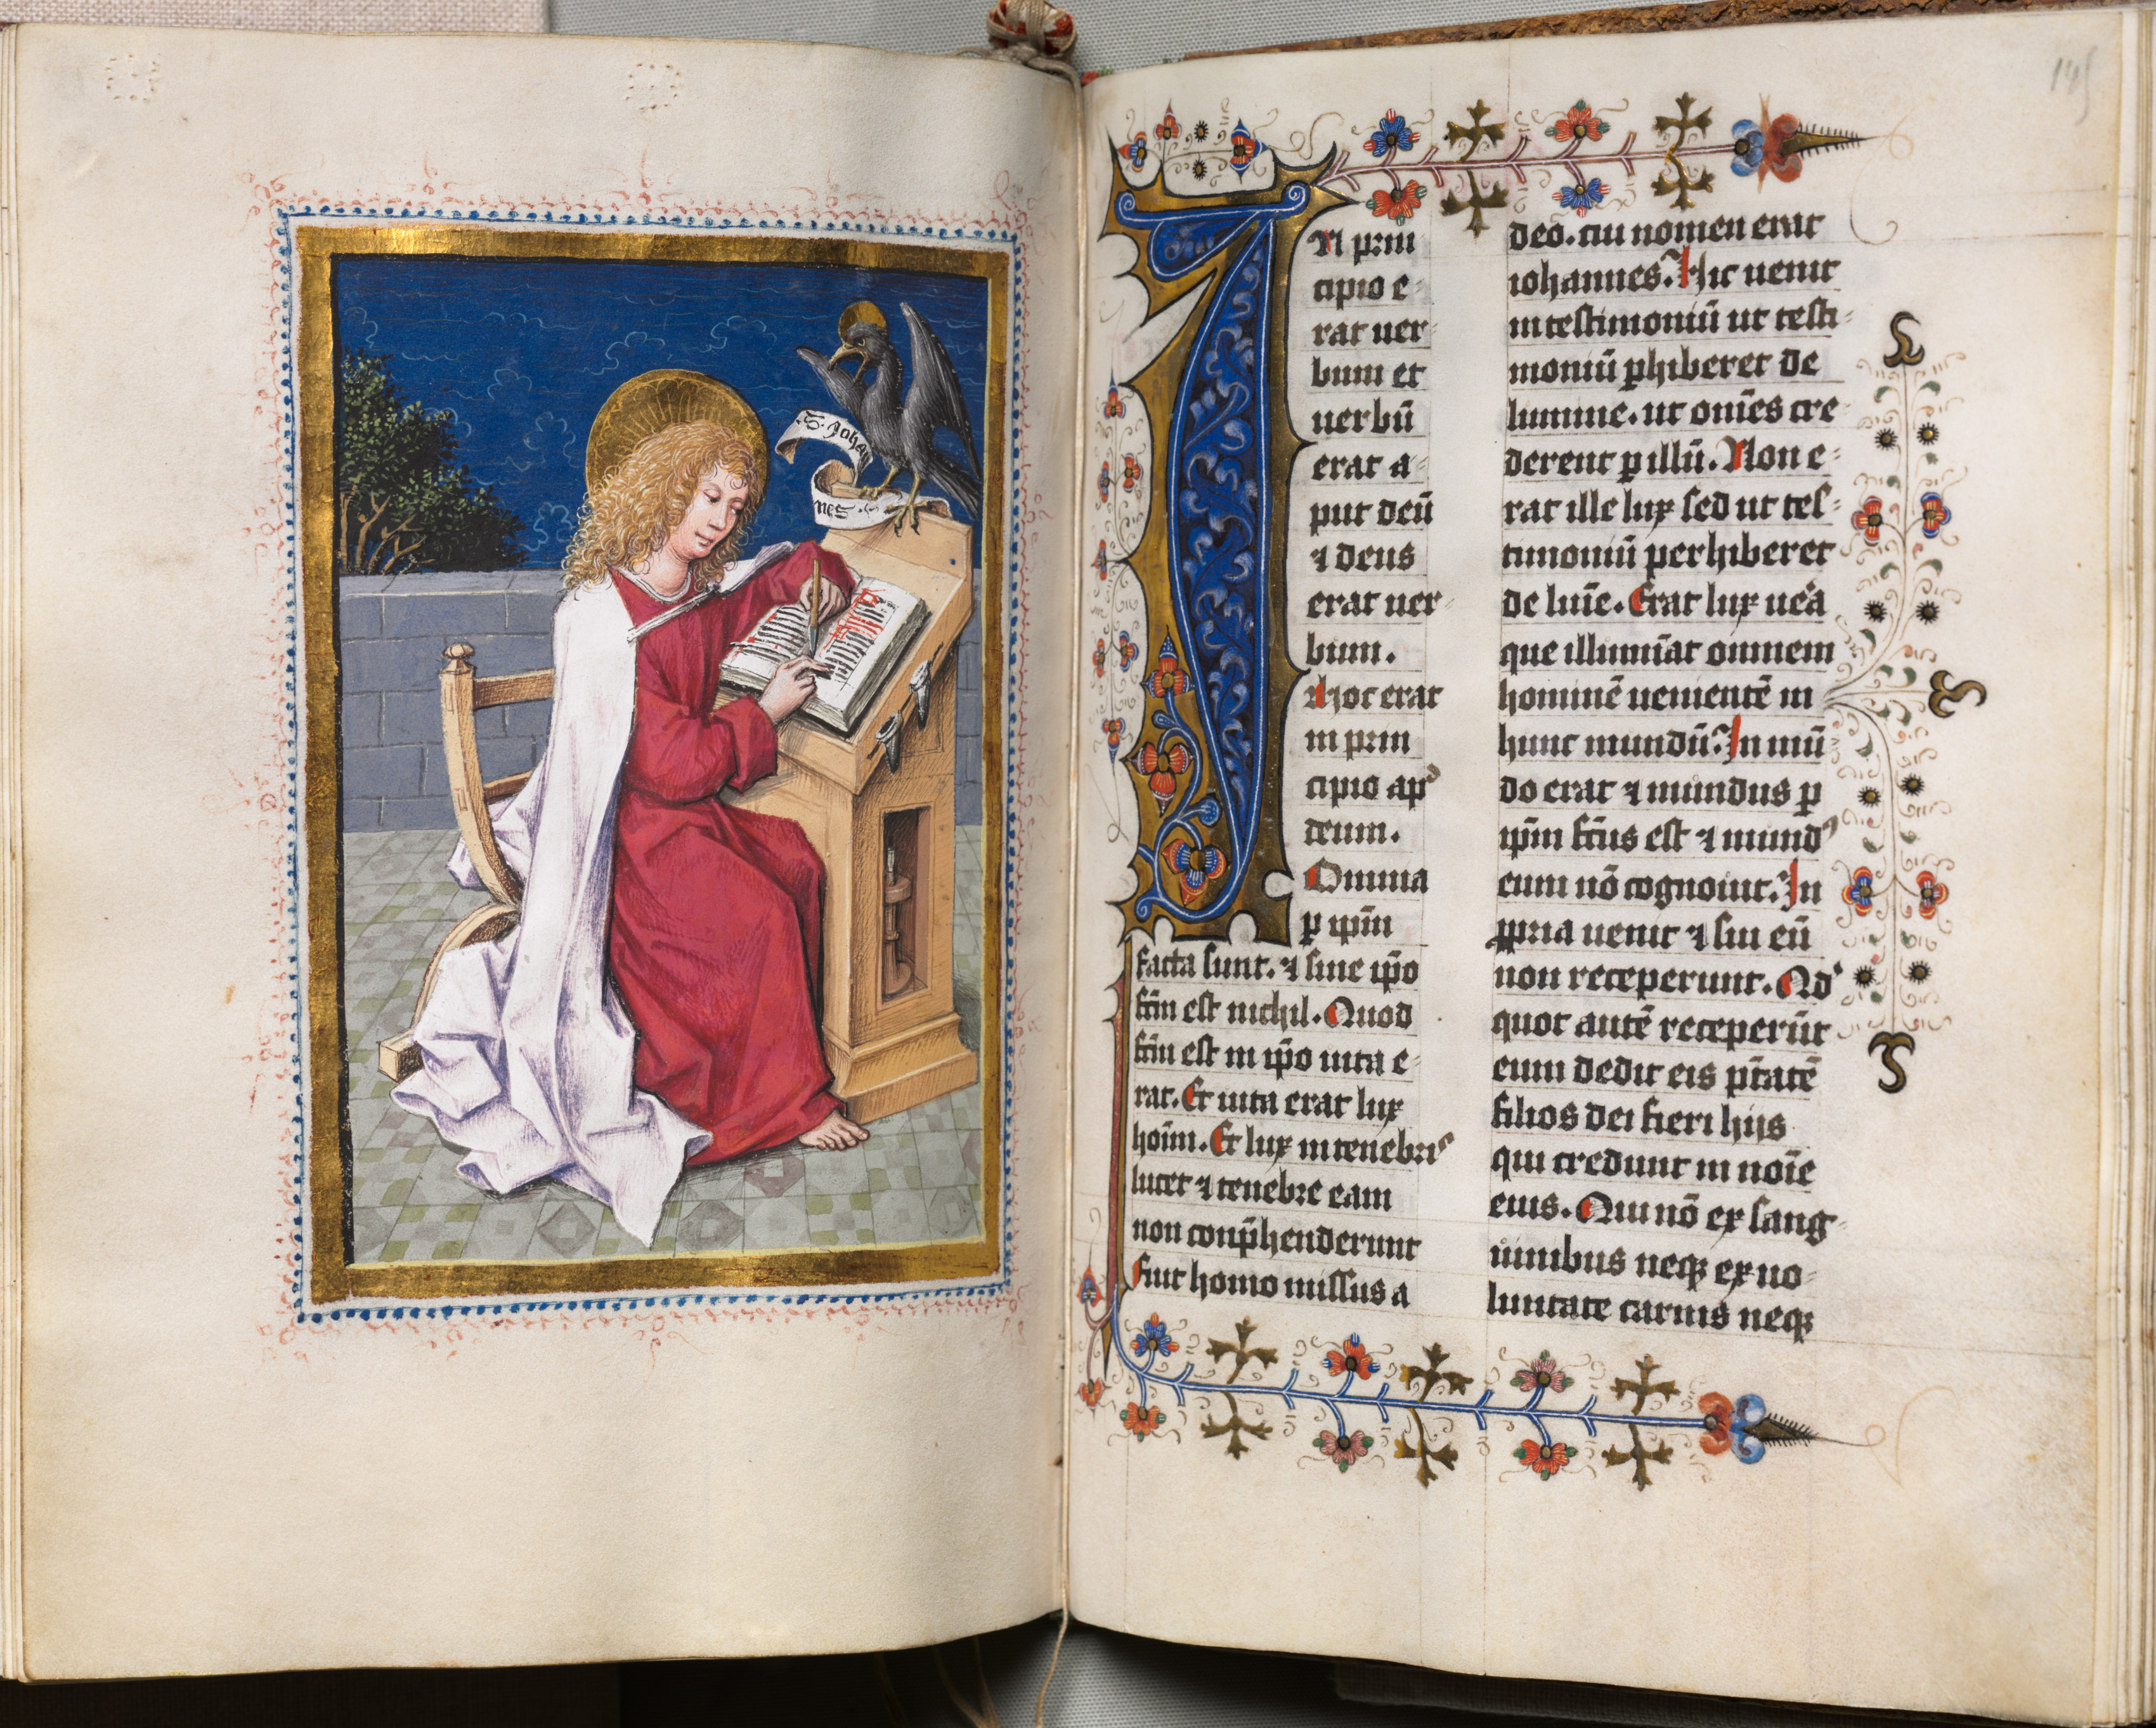 S. Johan
nes
145
IN prin
cipio e
rat uer
bum et
uerbū
erat a
put deū
⁊ deus
erat uer
bum.
Hoc erat
in prin
cipio apᵈ
deum.
Omnia
ꝑ ip̄m
facta sunt. ⁊ sine ip̄o
fc̄m est nichil. Quod
fc̄m est in ip̄o uita e
rat. Et uita erat lux
hoīm. Et lux in tenebriˢ
lucet ⁊ tenebre eam
non conp̄henderunt
Fuit homo missus a
deo. cui nomen erat
iohannes. Hic uenit
in testimoniū ut testi
moniū ꝑhiberet de
lumine. ut om̄es cre
derent ꝑ illū. Non e
rat ille lux sed ut tes
timoniū perhiberet
de luīe. Erat lux ue͛a
que illumīat omnem
hominē uenientē in
hunc mundū. In mū
do erat ⁊ mundus ꝑ
ip̄m fc̄us est ⁊ mundꝰ
eum nō cognouit. In
ꝓpria uenit ⁊ sui eū
non receperunt. Qd'
quot autē receperūt
eum dedit eis pt̄atē
filios dei fieri hijs
qui credunt in noīe
eius. Qui nō ex sang
uinibus neqꝫ ex uo
luntate carnis neqꝫ